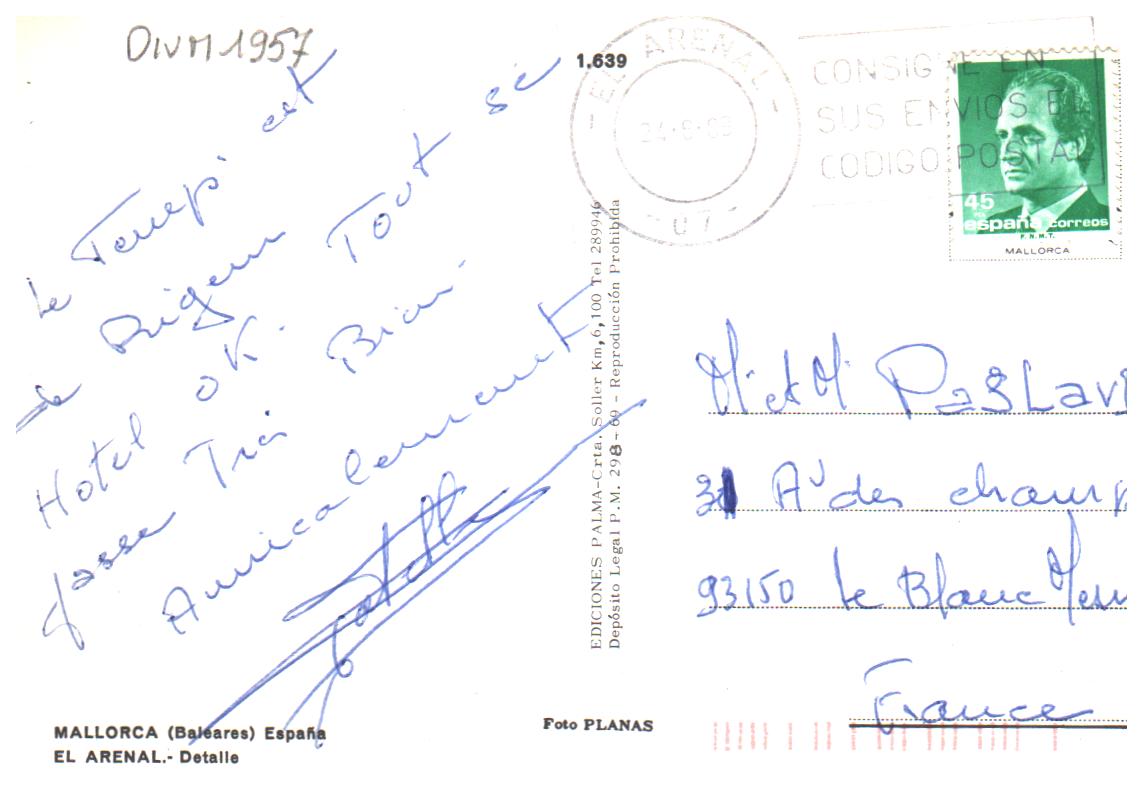 DIVM 1957
Le Temps est
de Rigeur
Hotel OK. Tout sé
passe Trai Bien
Amicalement
1,639
EL ARENAL
07
CONSIGNE EN
SUS ENVIOS EL
CODIGO POSTAL
45
españa correos
F.N.M.T.
MALLORCA
EDICIONES PALMA-Crta. Soller Km,6,100 Tel 289946
Depósito Legal P.M. 298 - 69 - Reproducción Prohibida
M. et M.
31 Av des champ
93150 Le Blanc Mesn
France
MALLORCA (Baleares) España
EL ARENAL.- Detalle
Foto PLANAS